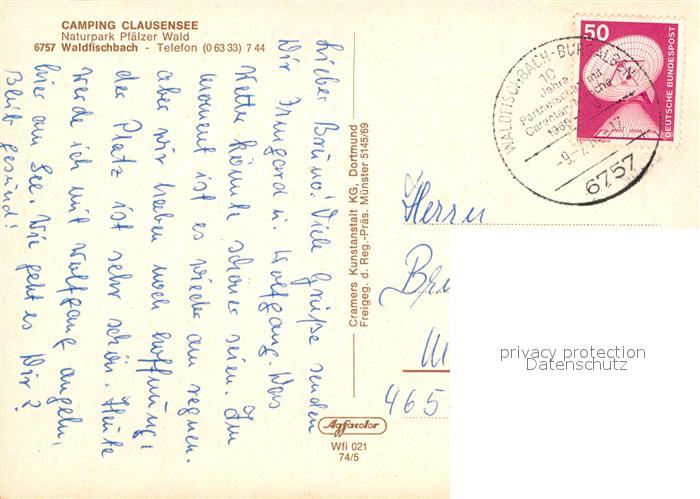 CAMPING CLAUSENSEE
Naturpark Pfälzer Wald
6757 Waldfischbach - Telefon (0 63 33) 7 44
Lieber Bruno! Viele Grüße senden
Dir Irmgard u. Wolfgang. Das
Wetter könnte schöner seien. Im
moment ist es wieder am regnen.
aber wir haben noch hoffnung,
der Platz ist sehr schön. Heute
werde ich mit Wolfgang angeln,
hier am See. Wie geht es Dir?
Bleib gesund!
Cramers Kunstanstalt KG, Dortmund
Freigeg. d. Reg.-Präs. Münster 5145/69
Agfacolor
Wfi 021
74/5
WALDFISCHBACH-BURGALBEN
10
Jahre
Partnerschaft mit
6757
50
DEUTSCHE BUNDESPOST
Herrn
465
privacy protection
Datenschutz